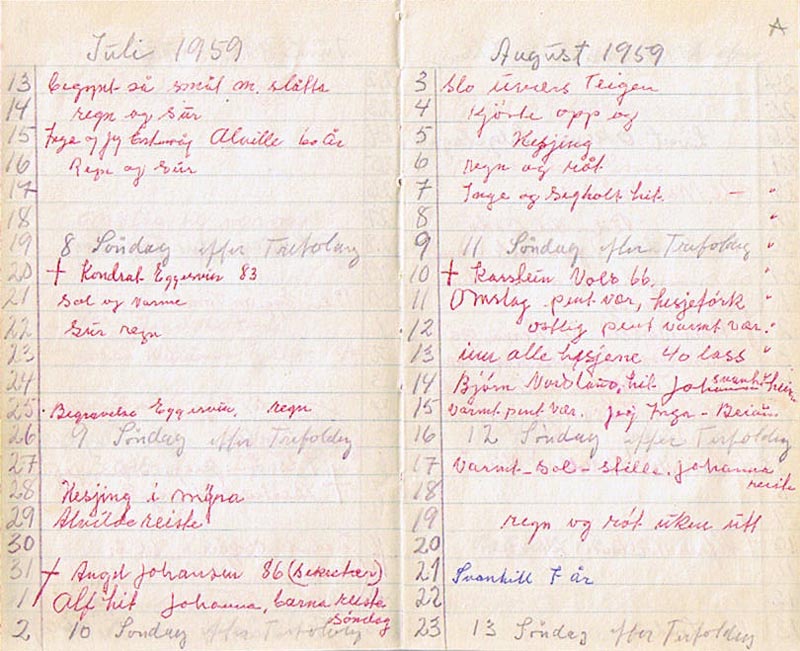 Juli 1959
13 Begynt så smål m. slåtta
14 regn og sür
15 Inge og Jeg Alville 60 år
16 Regn og sür
17
18
19 8 Söndag efter Trefoldey
20 + Kondrat Eggesvin 83
21 Sol og varme
22 Sür regn
23
24
25 Begravelse Eggesvin, regn
26 9 Söndag efter Trefoldey
27
28 Hesjing i myra
29 Alvilde reiste
30
31 + Angel Johansen 86 (Sekretær)
1 Alf hit Johanna, barna reiste
söndag
2 10 Söndag efter Trefoldey
A
August 1959
3 Slo üvers Teigen
4 Kjörte opp og
5 Hesjing
6 regn og röt
7 Inge og hit. — "
8 "
9 11 Söndag efter Trefoldey "
10 + Karstein Vold 66. "
11 Omslag pent vær, hesjetörk "
12 ostlig pent varmt vær. "
13 inn alle hesjene 40 lass "
14 Björn Nordlano, hit Johanna Svanhil heim
15 Varmt pent vær. Jeg Inga - Beiarn
16 12 Söndag efter Trefoldey
17 Varmt - Sol - stille. Johanna
reiste
18
19 regn og röt üken ütt
20
21 Svanhill 7 år
22
23 13 Söndag efter Trefoldey